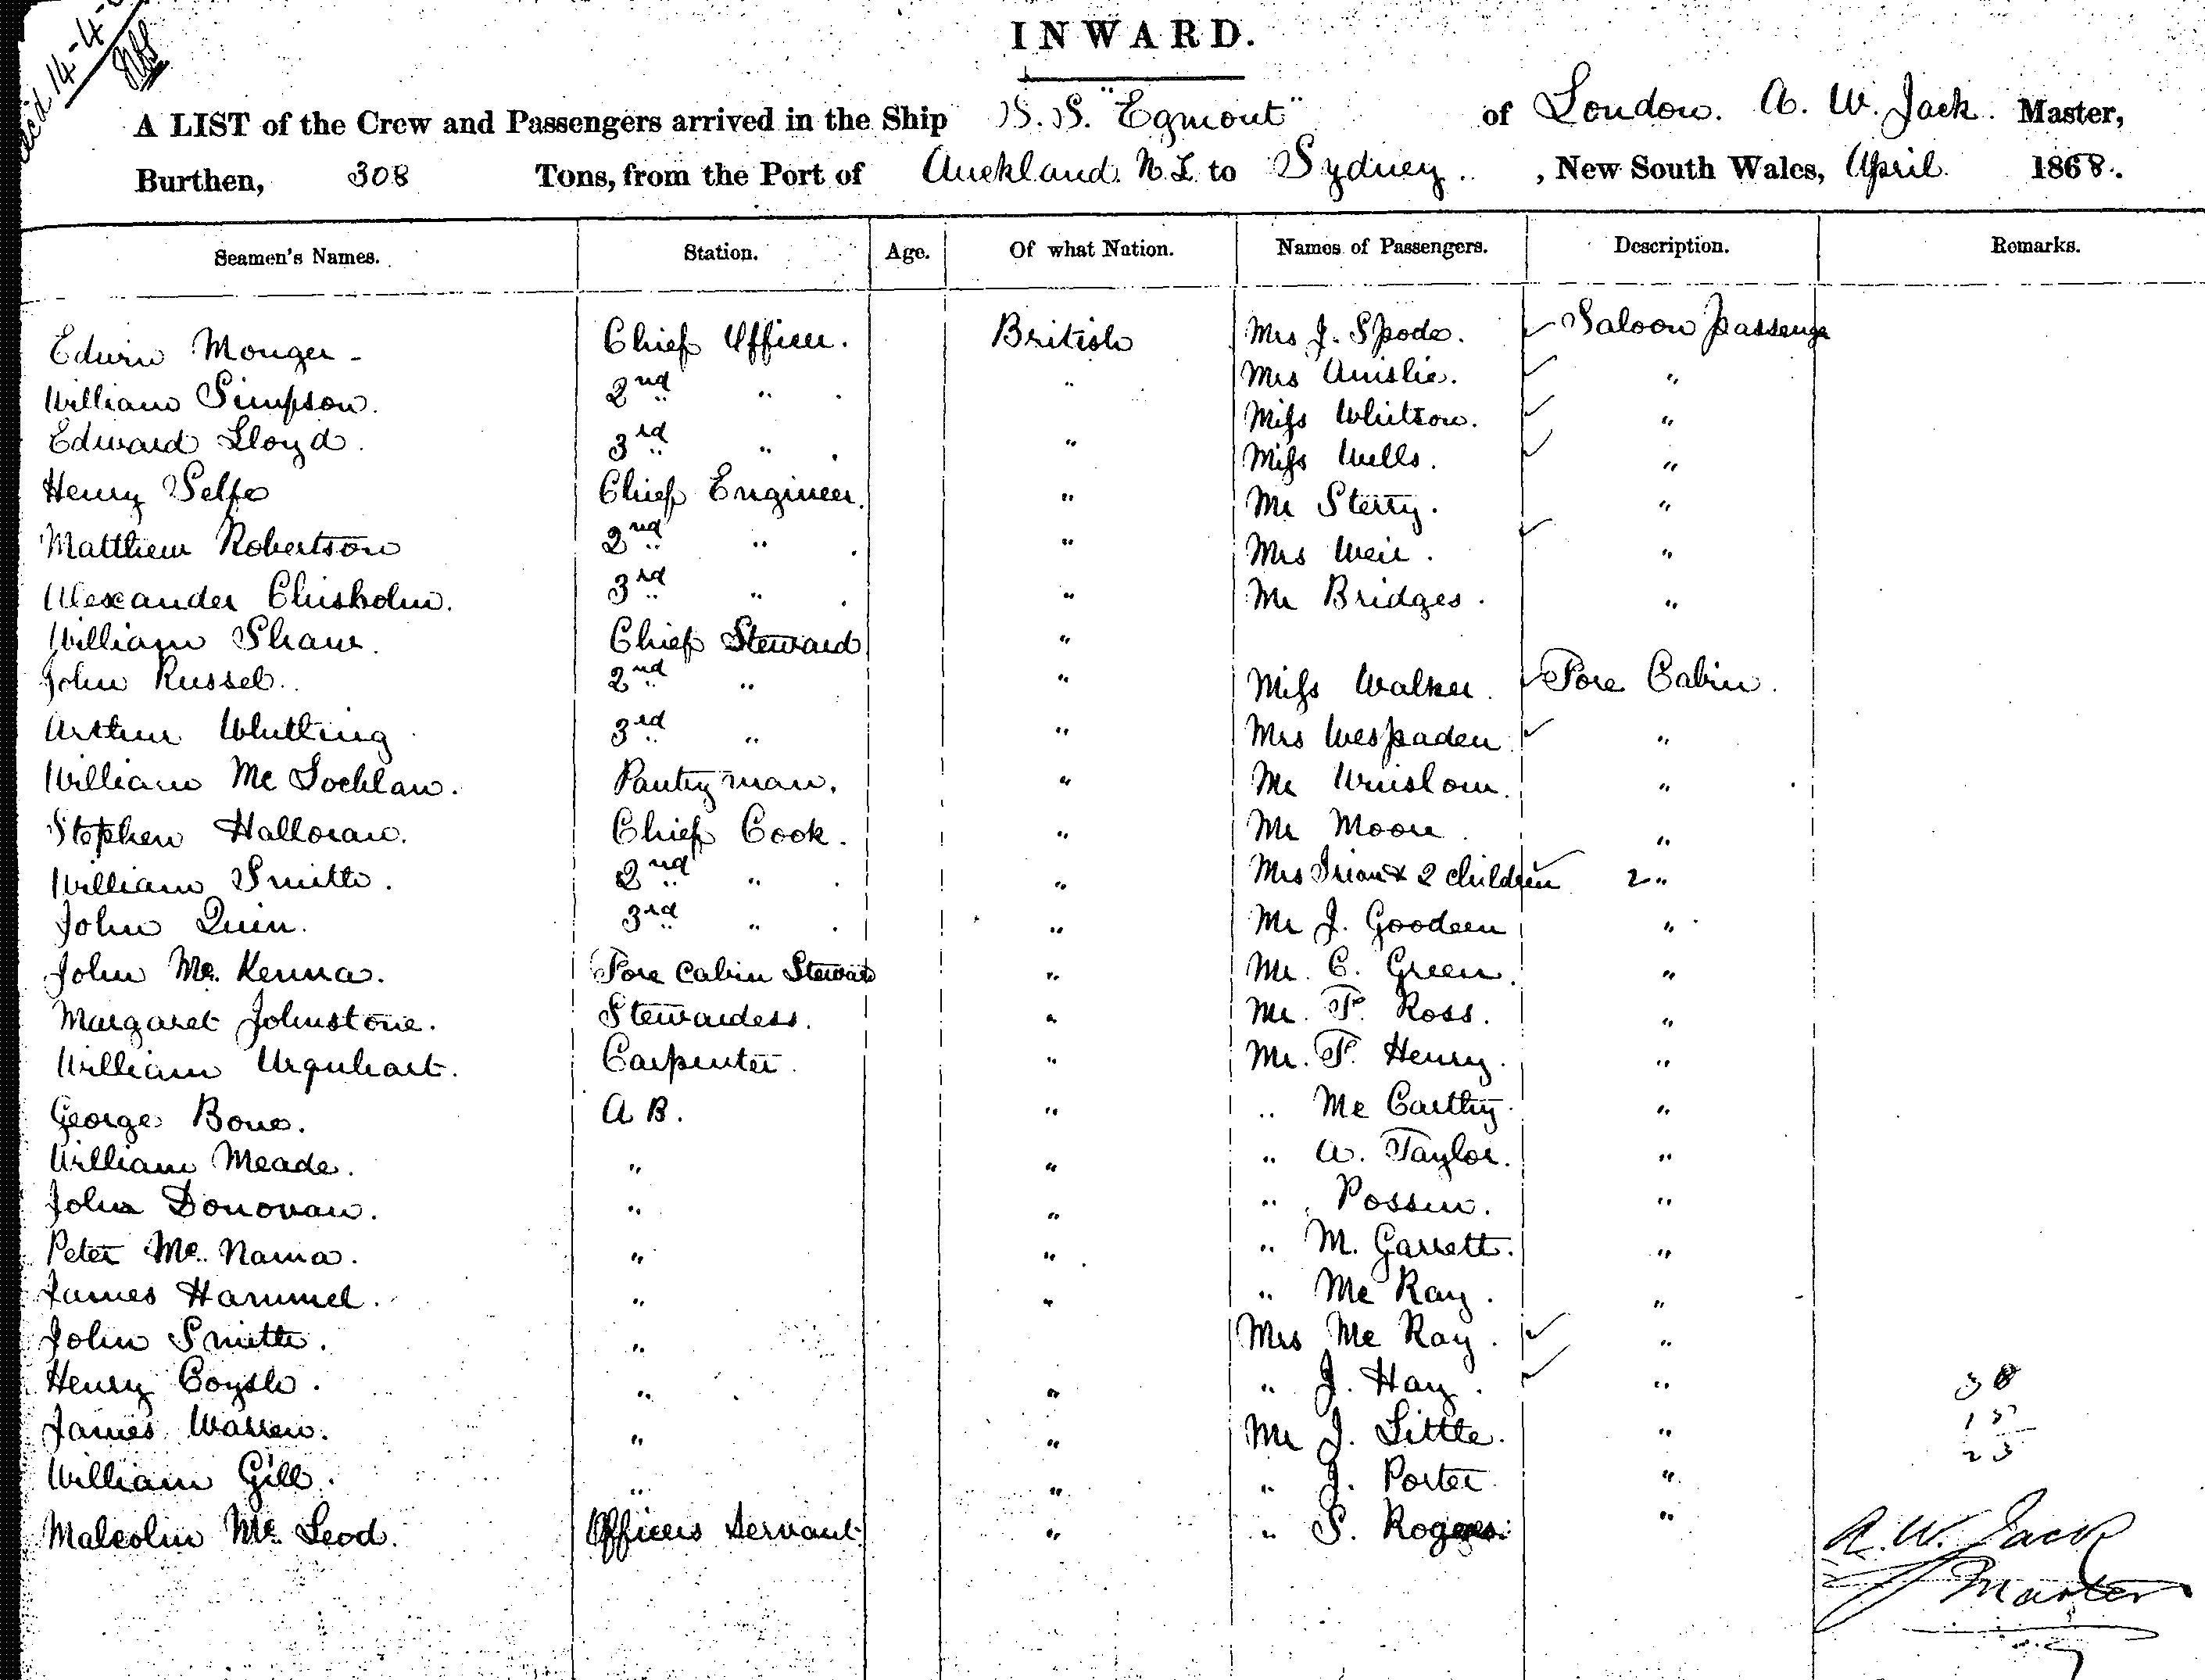 Rec'd 14-4-
INWARD.
A LIST of the Crew and Passengers arrived in the Ship S.S. "Egmont" of London. A. W. Jack. Master,
Burthen, 308 Tons, from the Port of Auckland. N.Z. to Sydney. , New South Wales, April 1868.
Seamen's Names. Station. Age. Of what Nation. Names of Passengers. Description. Remarks.
Edwin Monger - Chief Officer. British Mrs J. Spode. ✓ Saloon passenge
William Simpson. 2nd " . " Mrs Ainslie. ✓ "
Edward Lloyd. 3rd " . " Miss Whitson. ✓ "
Miss Wells. ✓ "
Henry Selfe Chief Engineer. " Mr Sterry. "
Matthew Robertson 2nd " . " Mrs Weir. ✓ "
Alexander Chisholm. 3rd " . " Mr Bridges. "
William Shaw. Chief Steward "
John Russel. 2nd " " Miss Walker. ✓ Fore Cabin.
Arthur Whitting 3rd " " Mrs Wespaden ✓ "
William Mc Lochlan. Pantry man. " Mr Winslow. "
Stephen Halloran. Chief Cook. " Mr Moore. "
William Smith. 2nd " . " Mrs & 2 children ✓ 2 "
John Quin. 3rd " . " Mr J. Goodeen "
John Mc Kenna. Fore Cabin Steward " Mr. C. Green. "
Margaret Johnstone. Stewardess. " Mr. T. Ross. "
William Urquhart. Carpenter. " Mr. F. Henry. "
George Bone. A B. " " Mc Carthy. "
William Meade. " " " A. Taylor. "
John Donovan. " " " Possin. "
Peter Mc Nama. " " " M. Garrett. "
James Hammel. " " " Mc Kay. "
John Smith. " Mrs Mc Kay. ✓ "
Henry Coysh. " " " J. Hay. ✓ " 38
James Warren. " " Mr J. Little. " 15
William Gill. " " " J. Porter " 23
Malcolm Mc Leod. Officers Servant. " " S. Rogers. "
A. W. Jack
Master